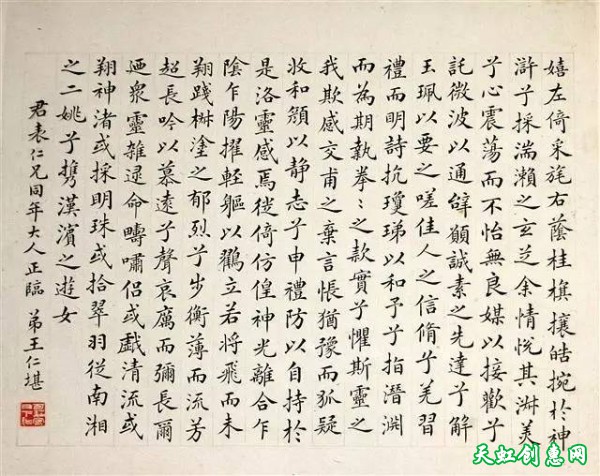 嬉左倚采旄右蔭桂旗攘皓捥於神
滸兮採湍瀨之玄芝余情悅其淑美
兮心震蕩而不怡無良媒以接歡兮
託微波以通辭願誠素之先達兮解
玉珮以要之嗟佳人之信脩兮羌習
禮而明詩抗瓊珶以和予兮指潛淵
而為期執拳〻之款實兮懼斯靈之
我欺感交甫之棄言悵猶豫而狐疑
收和顏以静志兮申禮防以自持於
是洛靈感焉徙倚仿偟神光離合乍
陰乍陽擢輕軀以鶴立若將飛而未
翔踐椒塗之郁烈兮步衡薄而流芳
超長吟以慕遠兮聲哀厲而彌長爾
迺衆靈雜遝命疇嘯侶或戲清流或
翔神渚或採明珠或拾翠羽從南湘
之二姚兮携漢濱之遊女
君表仁兄同年大人正臨 弟王仁堪
天虹创惠网